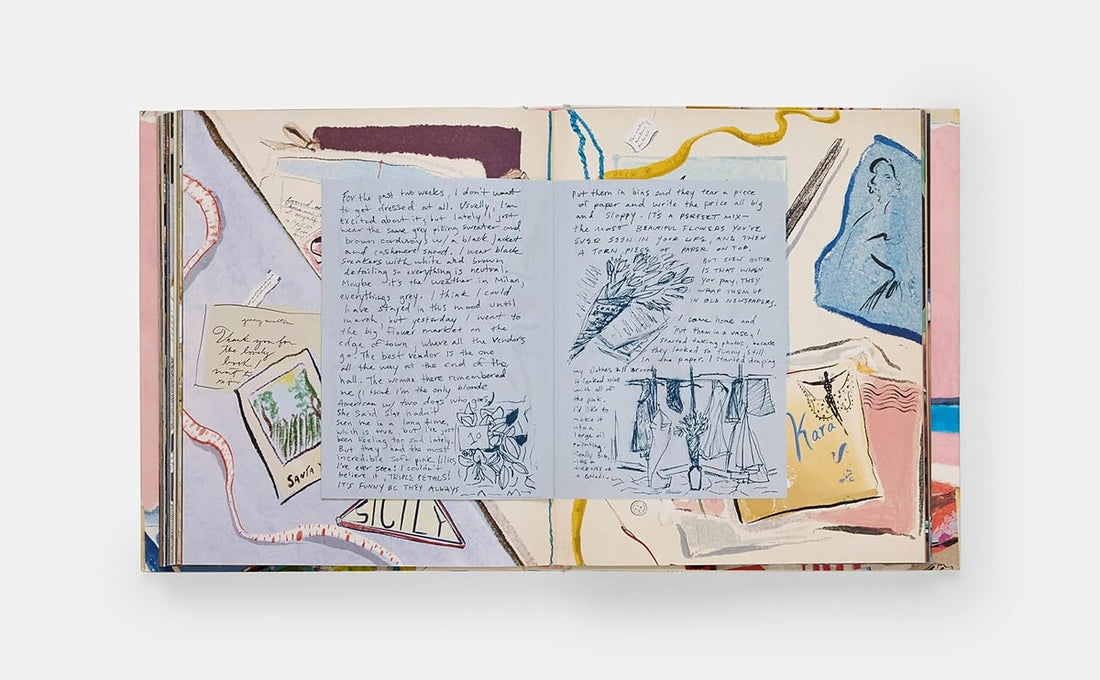 For the past two weeks, I don't want
to get dressed at all. Usually, I'm
excited about it, but lately I just
wear the same grey piling sweater and
brown corduroys w/ a black jacket
and cashmere snood. I wear black
sneakers with white and brown
detailing so everything is neutral.
Maybe it's the weather in Milan,
everythings grey. I think I could
have stayed in this mood until
march, but yesterday I went to
the big flower market on the
edge of town, where all the vendors
go. The best vendor is the one
all the way at the end of the
hall. The woman there remembered
me (I think I'm the only blonde
American w/ two dogs who goes)
She said she hadn't
seen me in a long time,
which is true but I've just
been feeling too sad lately.
But they had the most
incredible soft pink lilies
I've ever seen! I couldn't
believe it, TRIPLE PETALS!
IT'S FUNNY BC THEY ALWAYS
put them in bins and they tear a piece
of paper and write the price all big
and sloppy. ITS A PERFECT MIX—
the most BEAUTIFUL FLOWERS YOU'VE
EVER SEEN IN YOUR LIFE, AND THEN
A TORN PIECE OF PAPER ON TOP.
BUT EVEN BETTER
IS THAT WHEN
YOU PAY, THEY
WRAP THEM UP
IN OLD NEWSPAPERS.
I came home and
put them in a vase, I
started taking photos, because
they looked so funny still
in the paper. I started draping
my clothes all around
it looked nice
with all of
the pink.
I'd like to
make it
into a
large oil
painting.
Thank you for
the lovely
book
SANTA
SICILY
Kara